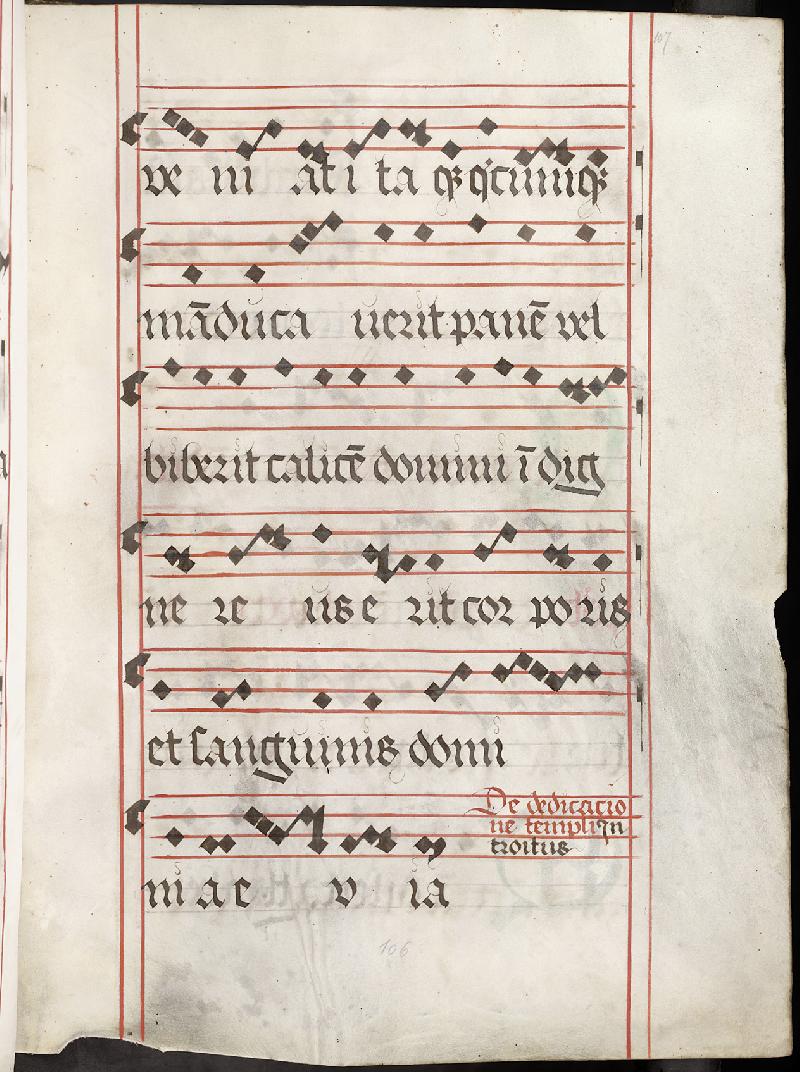 107
ve ni at i ta qꝫ q̇cūmqꝫ
māduca uerit panē vel
biberit calicē domini ī dig
ne re us e rit cor po ris
et sanguinis domi
De dedicacio
ne templi In
troitus
ni a e v ia
106